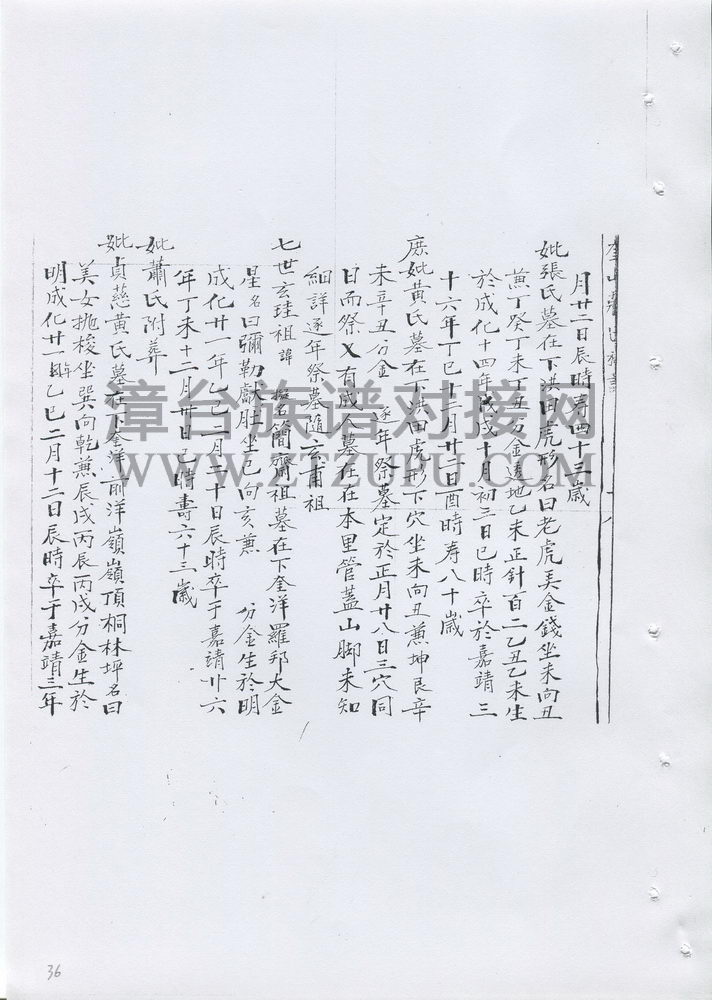 月廿二日辰時壽四十三歲
妣張氏墓在下洪田虎形名曰老虎美金錢坐未向丑
兼丁癸丁未丁丑分金透地乙未正針百二乙丑乙未生
於成化十四年戊戌十月初三日巳時卒於嘉靖三
十六年丁巳十二月廿一日酉時寿八十歲
庶妣黃氏墓在下洪田虎形下穴坐未向丑兼坤艮辛
未辛丑分金 逐年祭墓定於正月廿八日三穴同
日而祭又有成个墓在在本里管蓋山脚未知
細詳逐年祭墓隨玄甫祖
七世玄珪祖諱 簡齋祖墓在下奎洋羅邦大金
星名曰彌勒獻肚坐巳向亥兼 分金生於明
成化廿一年乙巳二月二十日辰時卒于嘉靖廾六
年丁未十二月廾日巳時壽六十三歲
妣蕭氏附葬
妣貞慈黃氏墓在下奎洋前洋嶺嶺頂桐林坪名曰
美女拋梭坐巽向乾兼辰戌丙辰丙戌分金生於
明成化廿一年乙巳二月十二日辰時卒于嘉靖三年
漳台族谱对接网
WWW.ZTZUPU.COM
36